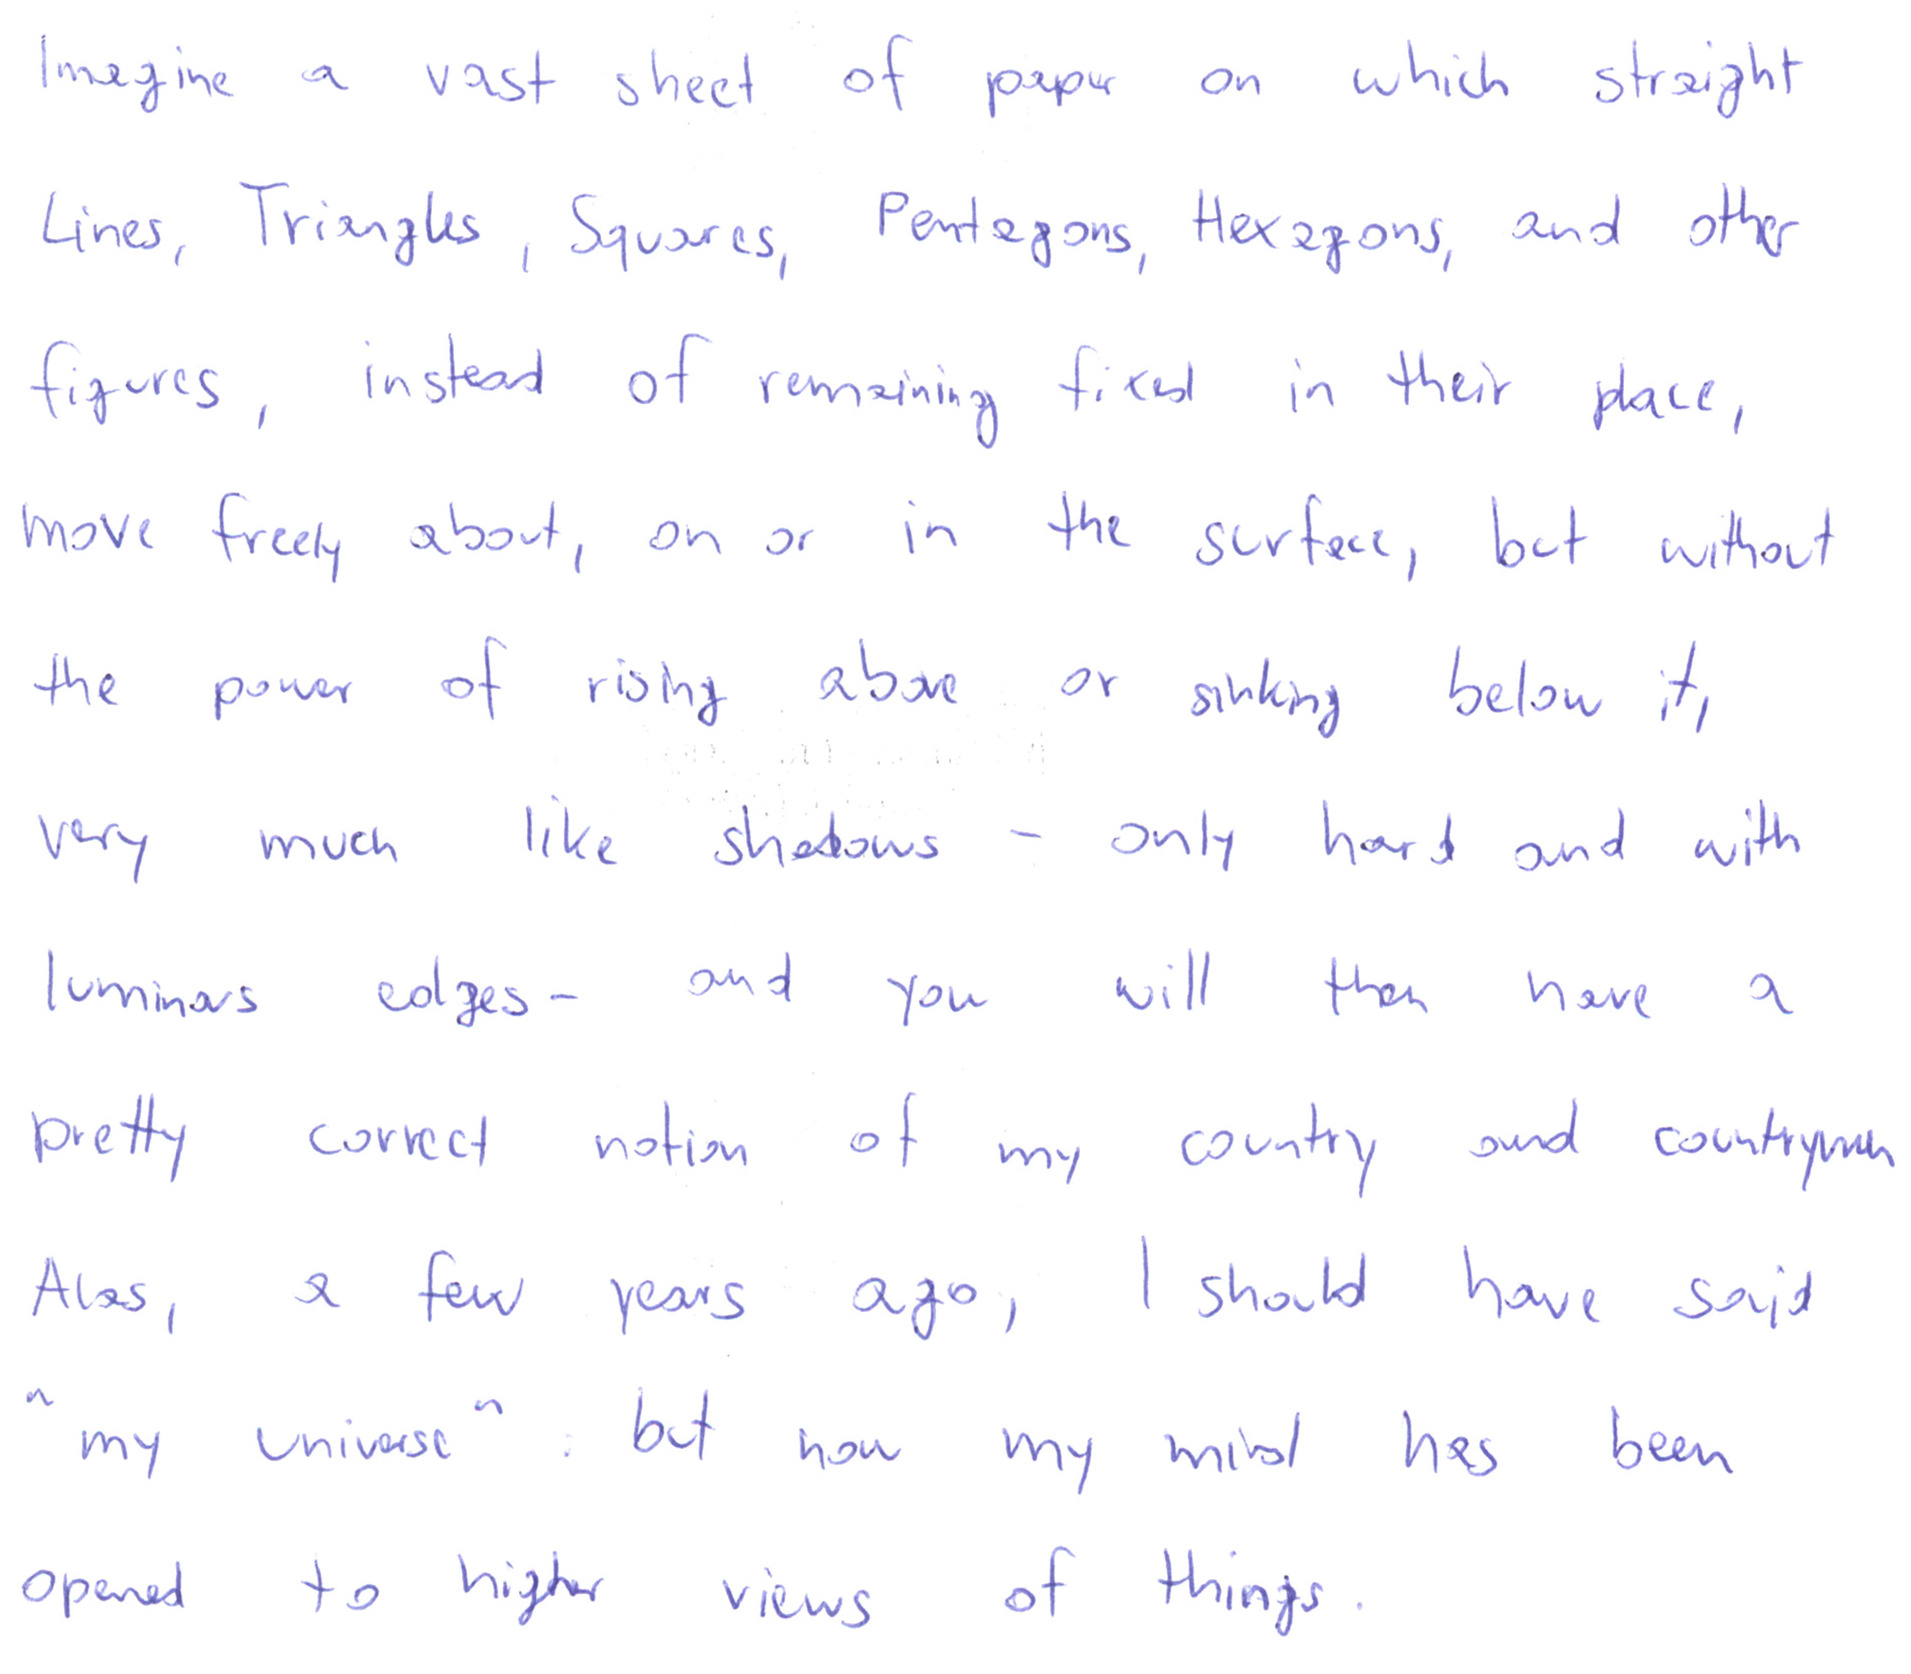 Imagine a vast sheet of paper on which straight
Lines, Triangles, Squares, Pentagons, Hexagons, and other
figures, instead of remaining fixed in their place,
move freely about, on or in the surface, but without
the power of rising above or sinking below it,
very much like shadows - only hard and with
luminous edges - and you will then have a
pretty correct notion of my country and countrymen
Alas, a few years ago, I should have said
"my universe": but now my mind has been
opened to higher views of things.